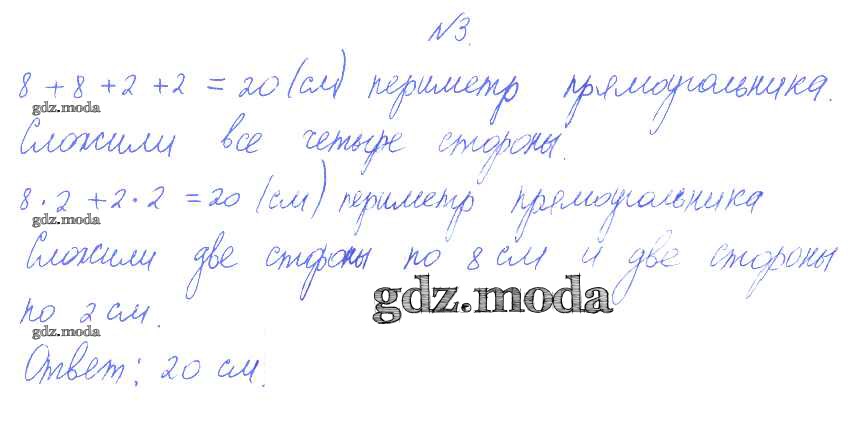 №3.
8 + 8 + 2 + 2 = 20 (см) периметр прямоугольника.
gdz.moda
Сложили все четыре стороны.
8 · 2 + 2 · 2 = 20 (см) периметр прямоугольника
gdz.moda
Сложили две стороны по 8 см и две стороны
gdz.moda
по 2 см.
gdz.moda
Ответ: 20 см.